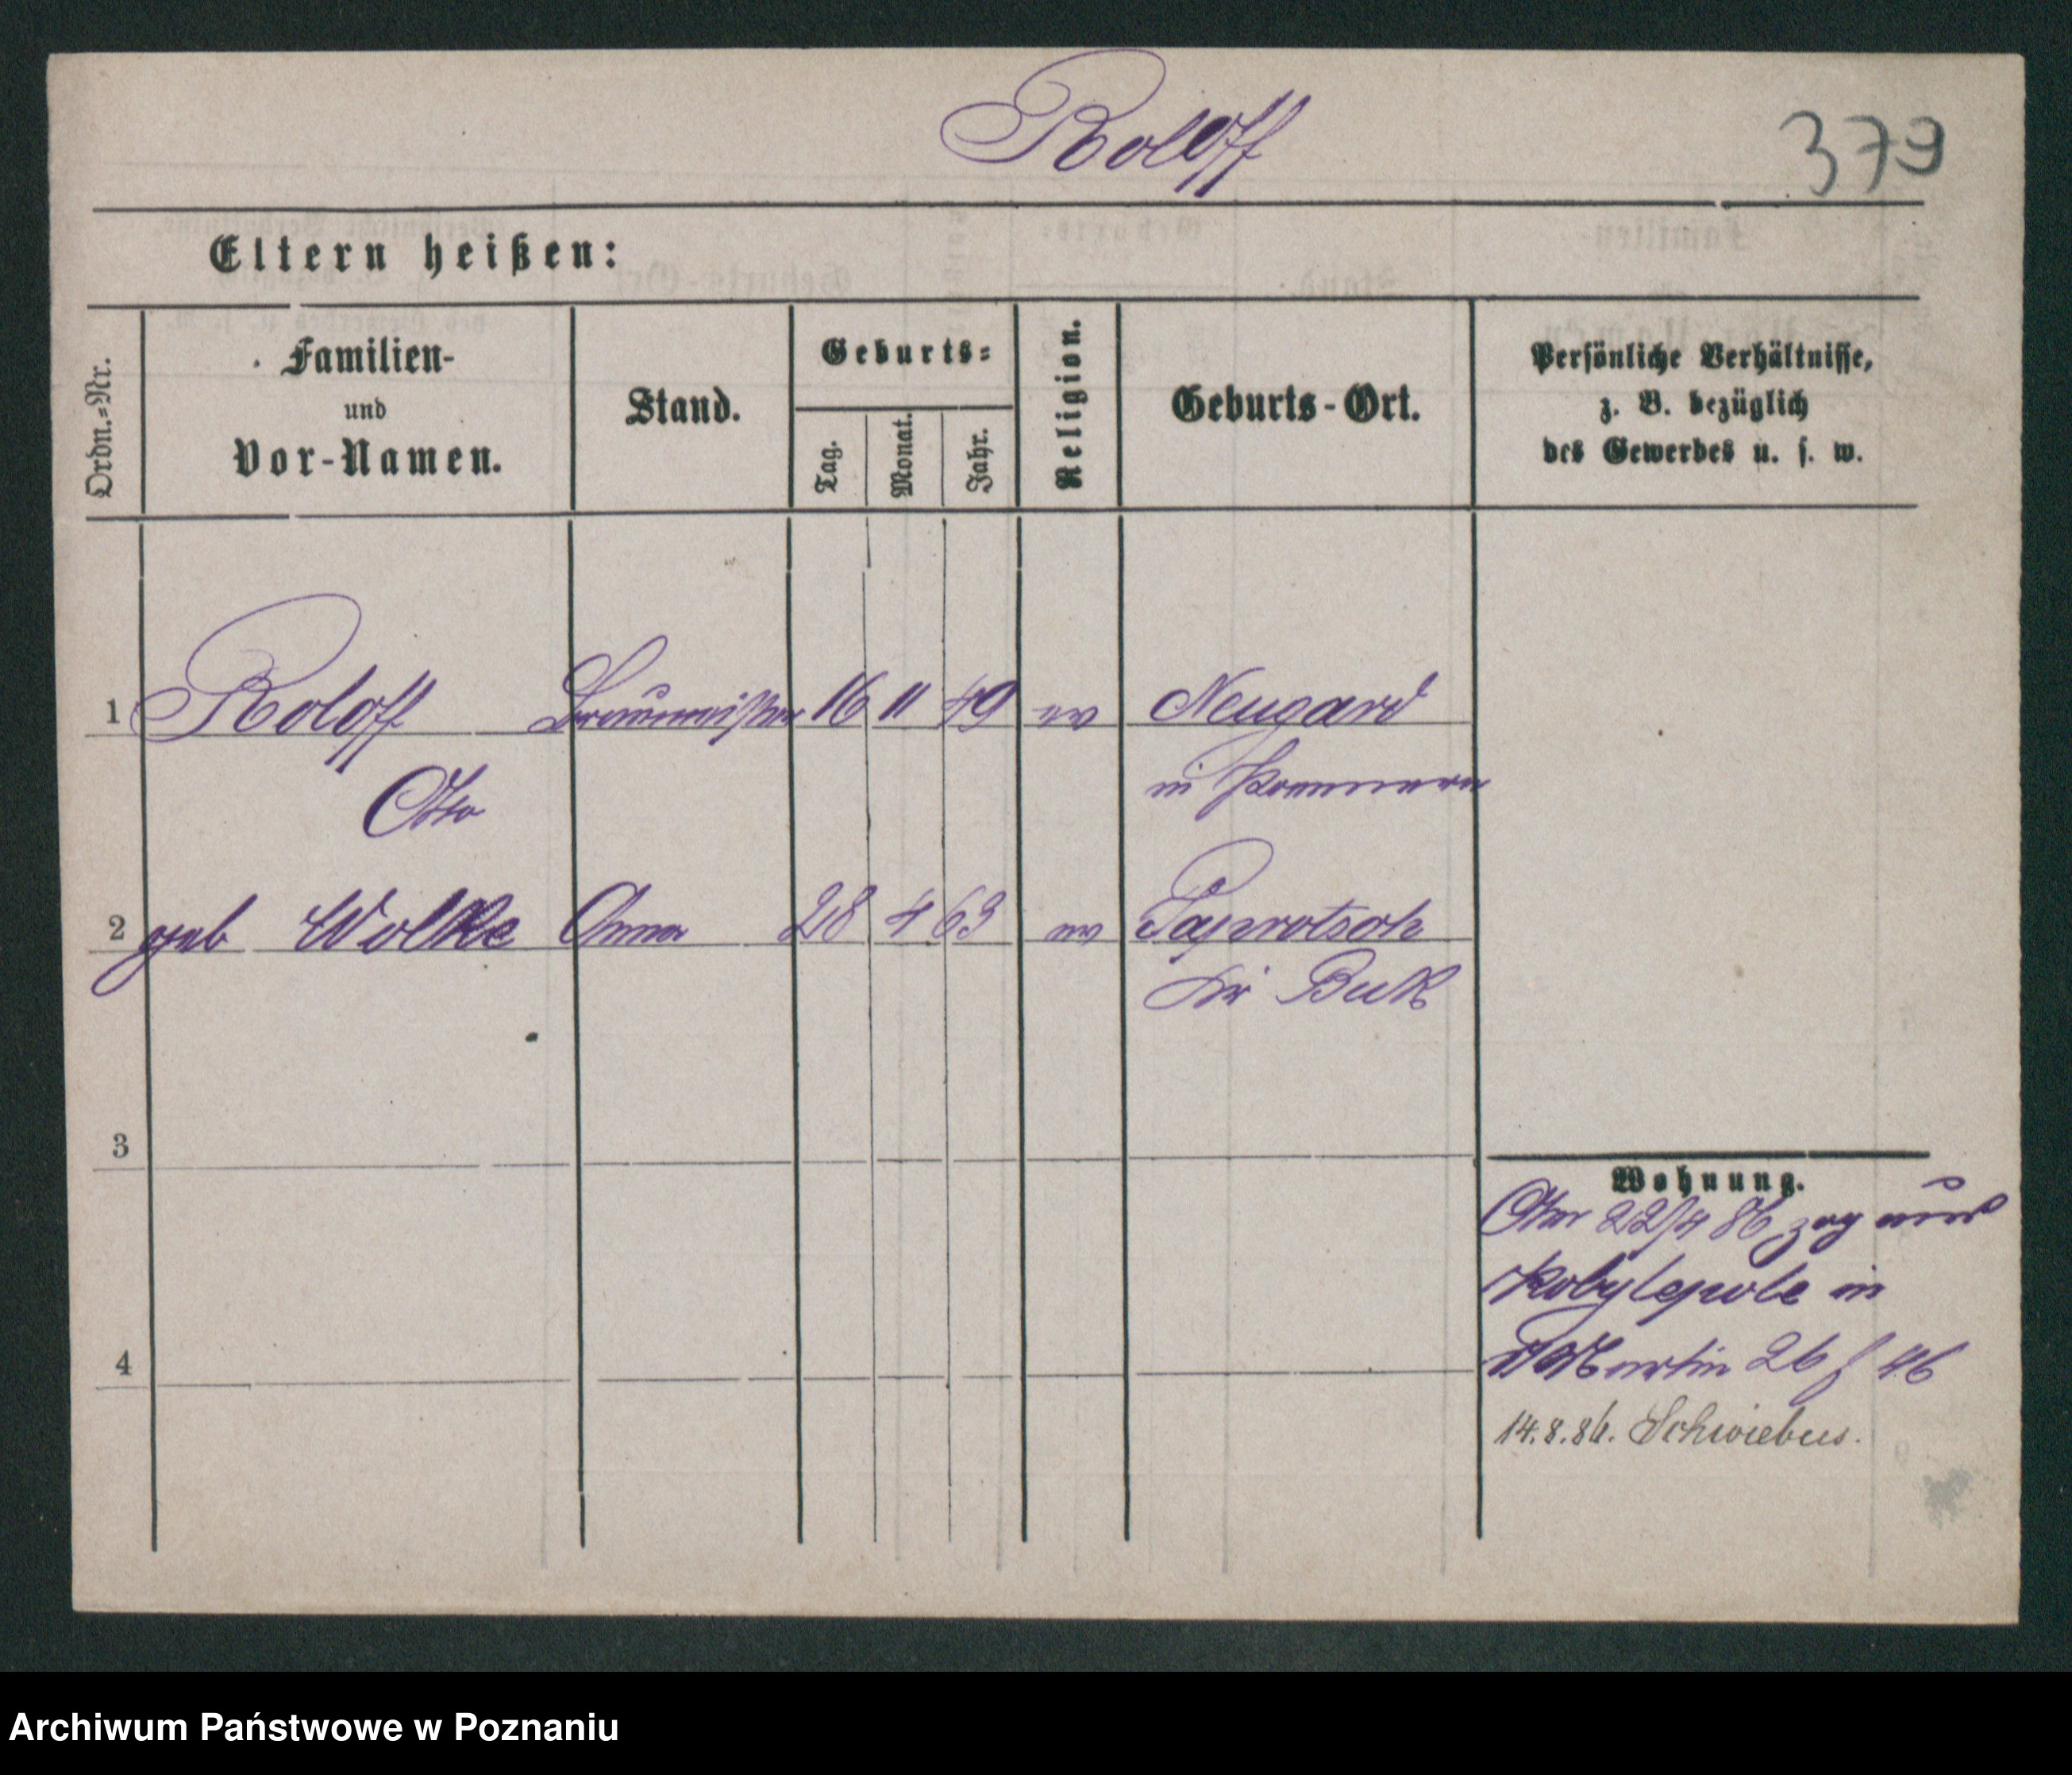 Roloff
379
Eltern heißen:
Ordn.-Nr.
Familien-
und
Vor-Namen.
Stand.
Geburts-
Tag.
Monat.
Jahr.
Religion.
Geburts-Ort.
Persönliche Verhältnisse,
z. B. bezüglich
des Gewerbes u. s. w.
1 Roloff Braumeister 16 11 49 ev Neugard
Otto in Pommern
2 geb Wolke Anna 28 4 63 ev Paprotsch
Kr Buk
3
Wohnung.
Otto 22/4 86 zog aus
Kobylepole in
Martin 26 f 46
4
14.8.86. Schwiebus.
Archiwum Państwowe w Poznaniu